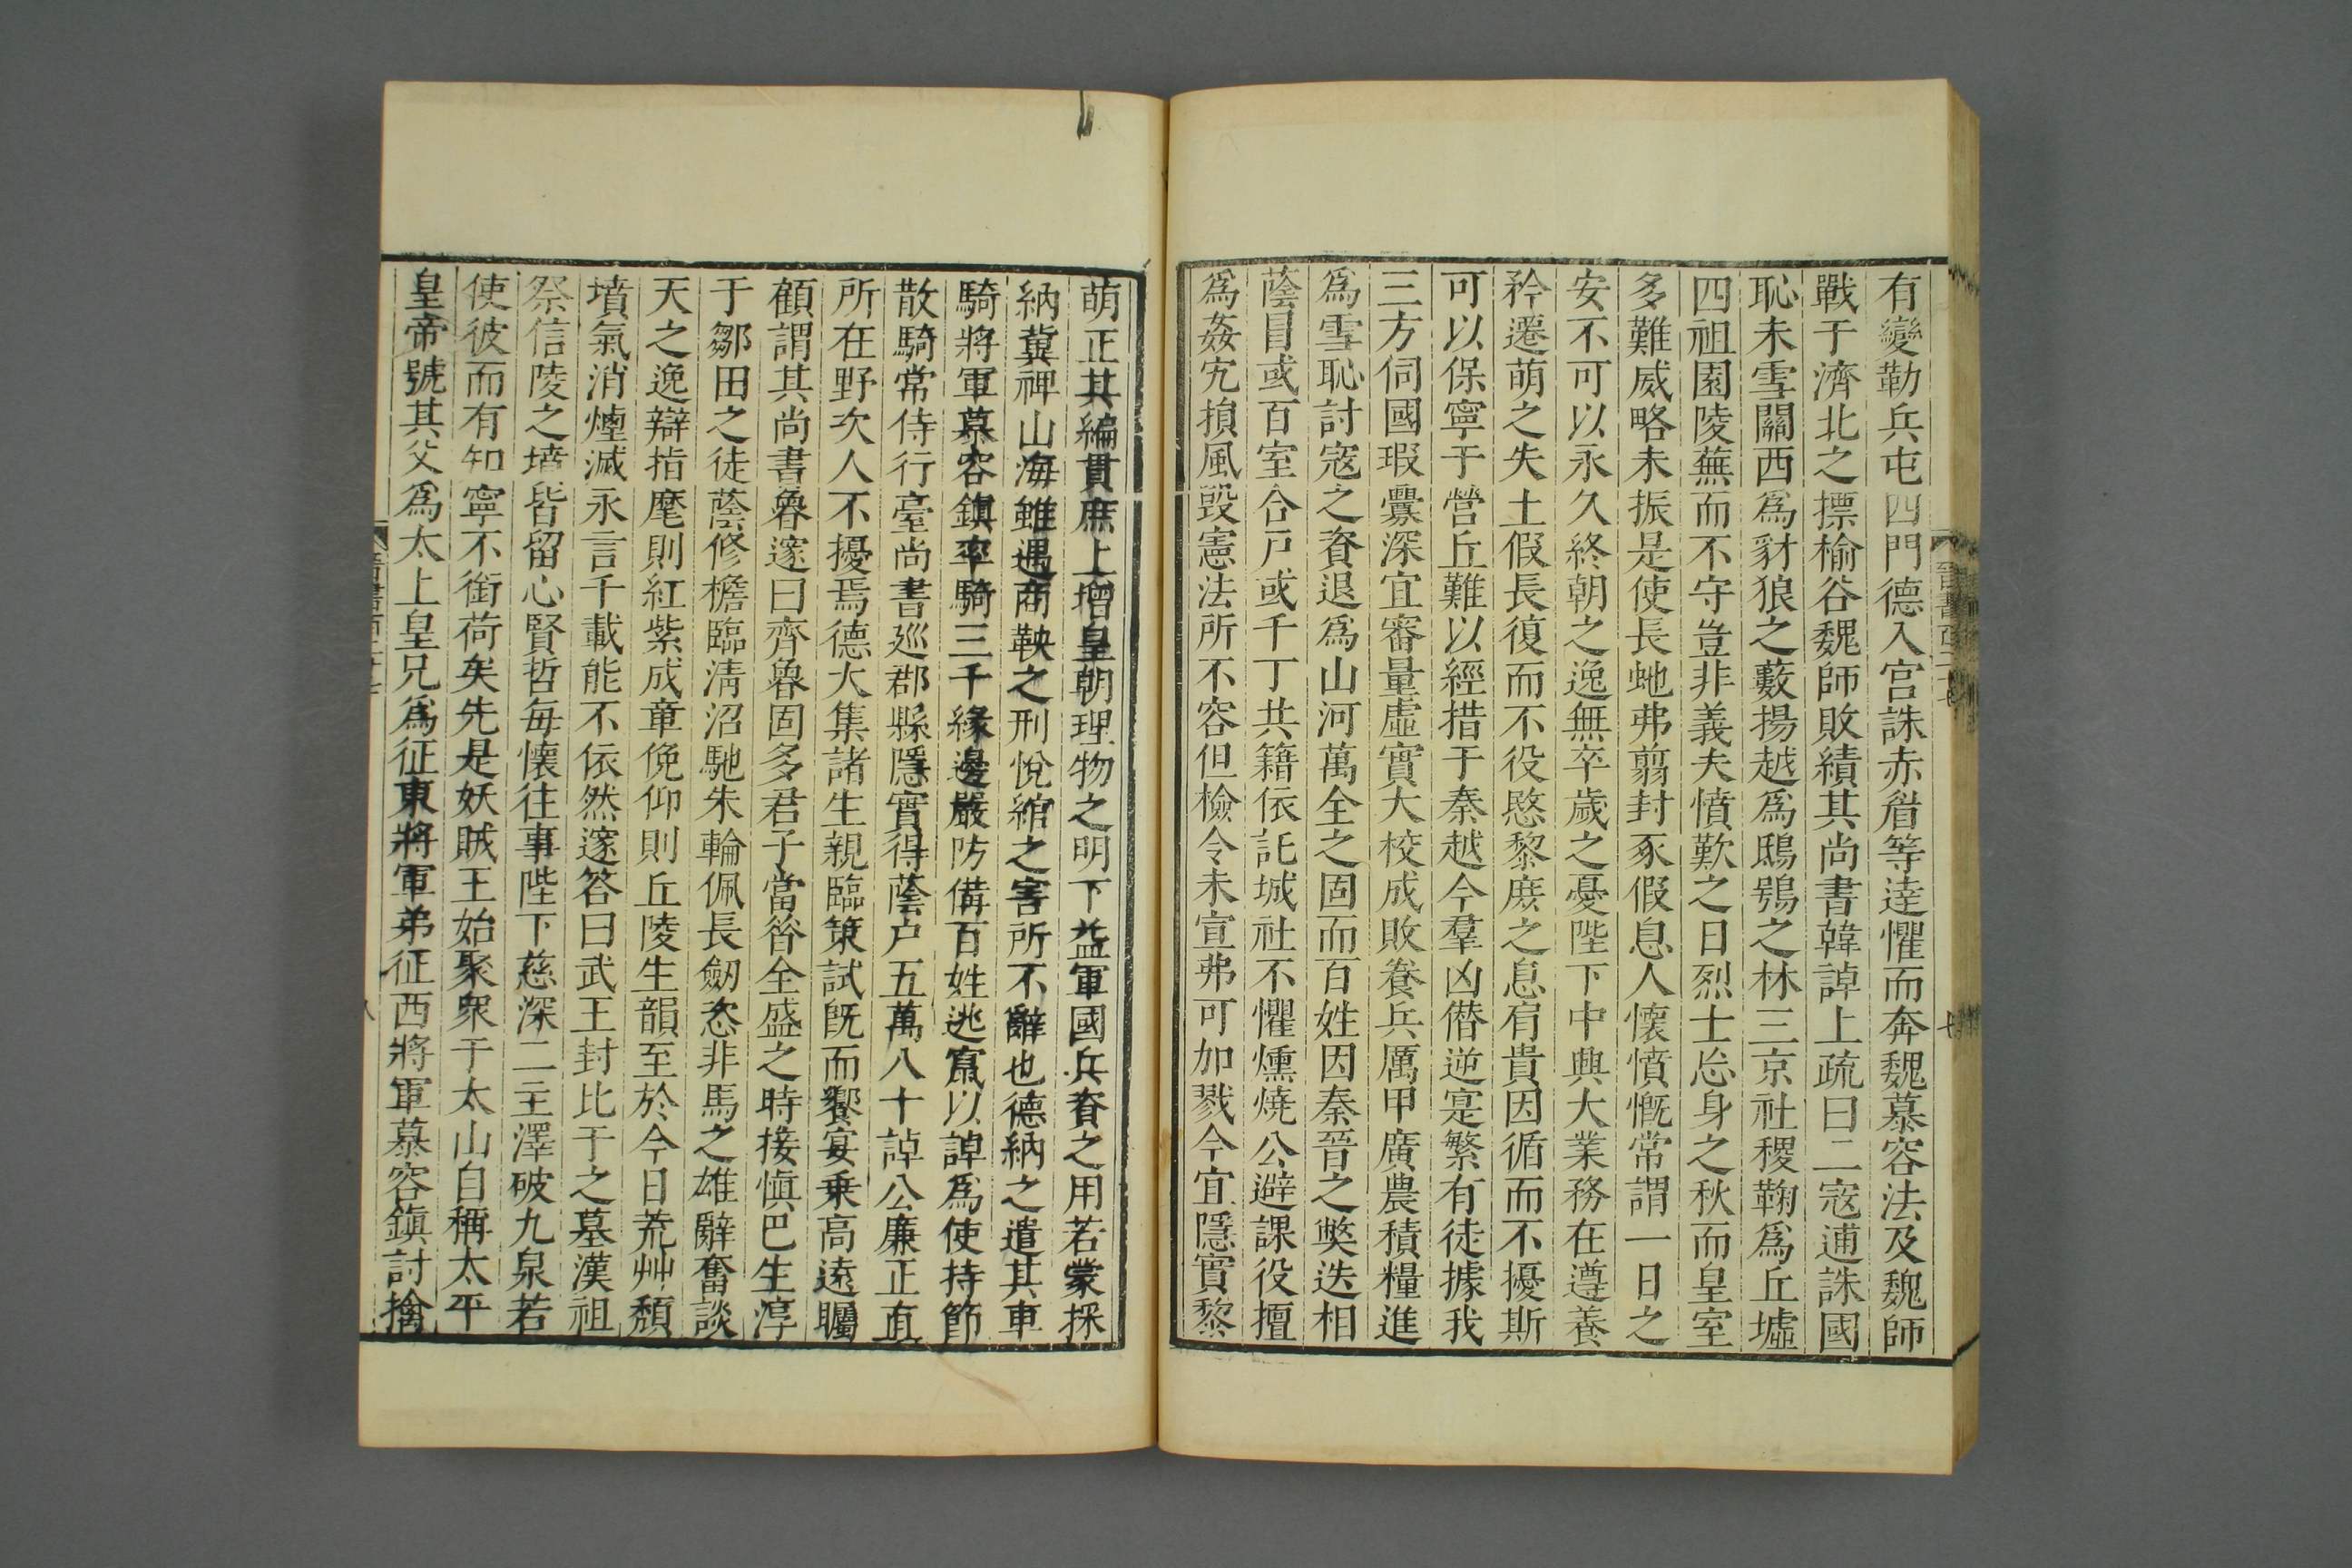 有變勒兵屯四門德入宮誅赤眉等達懼而奔魏慕容法及魏師
戰于濟北之摽榆谷魏師敗績其尚書韓𧨳上疏曰二寇逋誅國
恥未雪關西爲豺狼之藪揚越爲鴟鴞之林三京社稷鞠爲丘墟
四祖園陵蕪而不守豈非義夫憤歎之日烈士忘身之秋而皇室
多難威略未振是使長虵弗翦封豕假息人懷憤慨常謂一日之
安不可以永久終朝之逸無卒歲之憂陛下中興大業務在遵養
矜遷萌之失土假長復而不役愍黎庶之息肩貴因循而不擾斯
可以保寧于營丘難以經措于秦越今羣凶僭逆寔繁有徒據我
三方伺國瑕釁深宜審量虛實大校成敗養兵厲甲廣農積糧進
爲雪恥討寇之資退爲山河萬全之固而百姓因秦晉之弊迭相
蔭冒或百室合戸或千丁共籍依託城社不懼燻燒公避課役擅
爲姦宄損風毀憲法所不容但檢令未宣弗可加戮今宜隱實黎
萌正其編貫庶上增皇朝理物之明下益軍國兵資之用若蒙採
納冀裨山海雖遇商鞅之刑悅綰之害所不辭也德納之遣其車
騎將軍慕容鎮率騎三千緣邊嚴防備百姓逃竄以𧨳爲使持節
散騎常侍行臺尚書巡郡縣隱實得蔭户五萬八千𧨳公廉正直
所在野次人不擾焉德大集諸生親臨策試旣而饗宴乗高遠矚
顧謂其尚書魯邃曰齊魯固多君子當昝全盛之時接愼巴生淳
于鄒田之徒蔭修檐臨淸沼馳朱輪佩長劒恣非馬之雄辭奮談
天之逸辯指麾則紅紫成章俛仰則丘陵生韻至於今日荒艸頹
墳氣消煙滅永言千載能不依然邃答曰武王封比干之墓漢祖
祭信陵之墳皆留心賢哲每懷往事陛下慈深二主澤破九泉若
使彼而有知寧不銜荷矣先是妖賊王始聚衆于太山自稱太平
皇帝號其父爲太上皇兄爲征東將軍弟征西將軍慕容鎮討擒